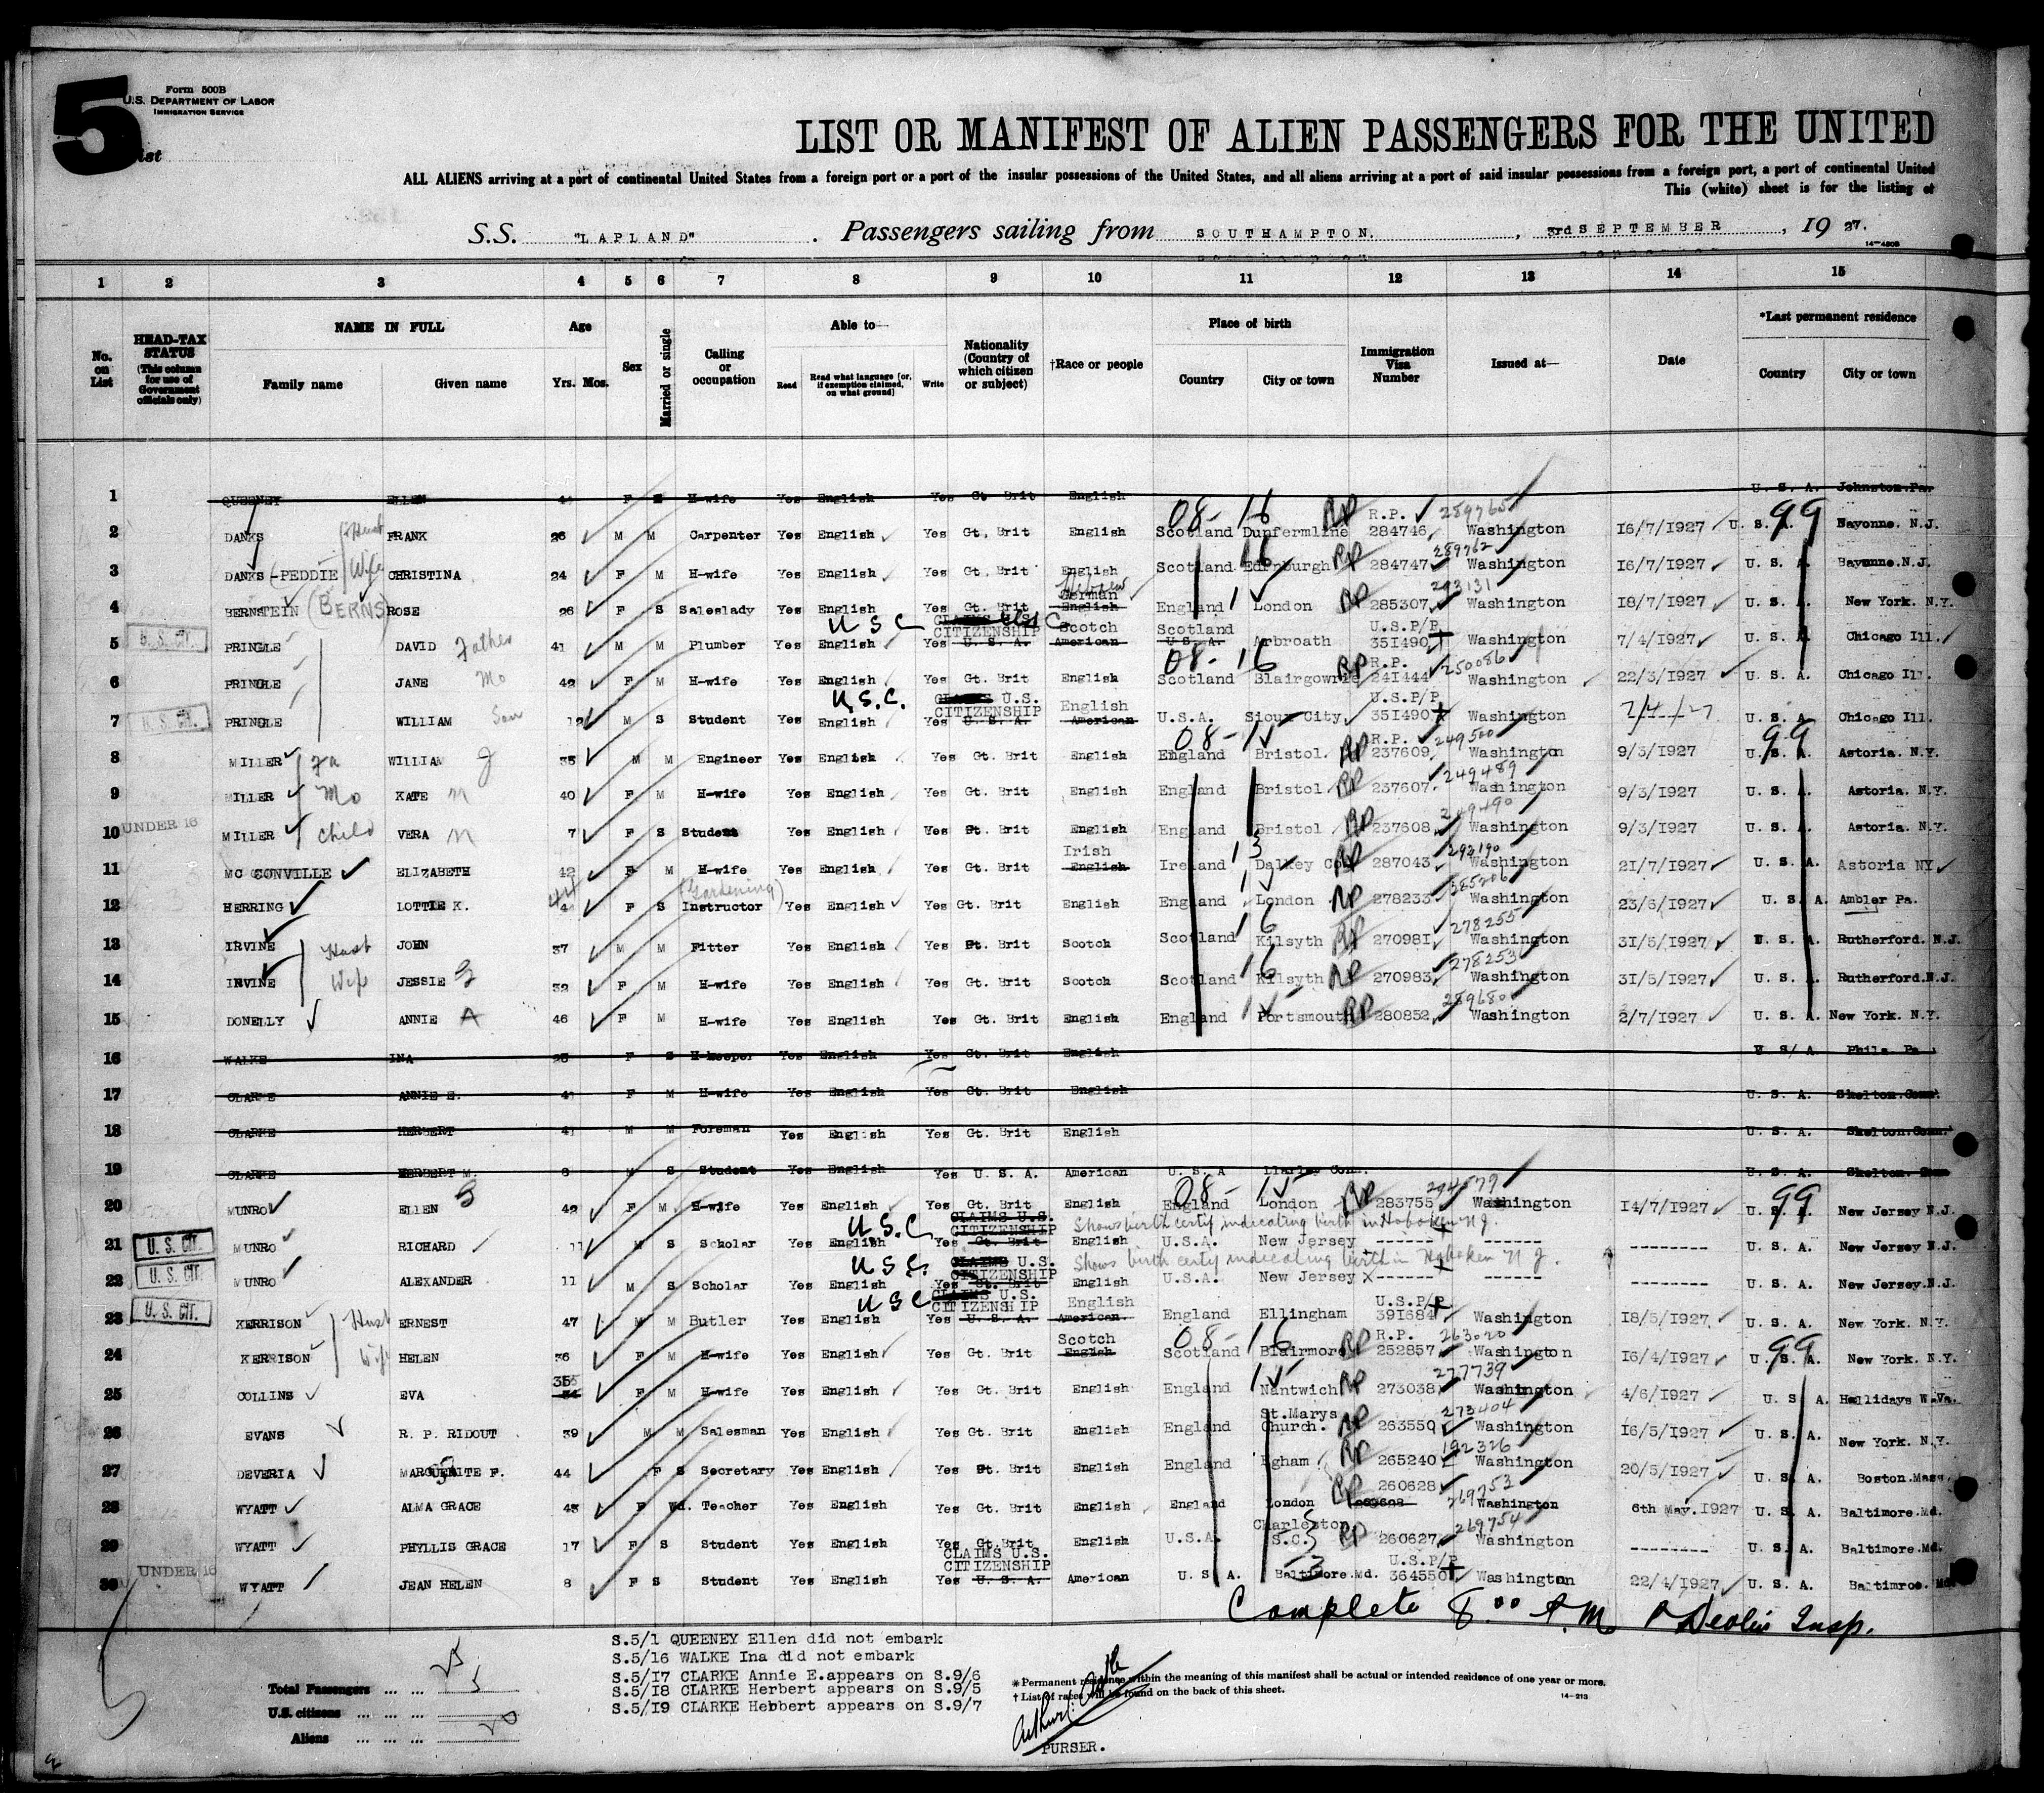 5
Form 500B
U.S. DEPARTMENT OF LABOR
IMMIGRATION SERVICE
List
LIST OR MANIFEST OF ALIEN PASSENGERS FOR THE UNITED
ALL ALIENS arriving at a port of continental United States from a foreign port or a port of the insular possessions of the United States, and all aliens arriving at a port of said insular possessions from a foreign port, a port of continental United
This (white) sheet is for the listing of
S.S. "LAPLAND". Passengers sailing from SOUTHAMPTON. , 3rd SEPTEMBER , 19 27.
14-480B
1 2 3 4 5 6 7 8 9 10 11 12 13 14 15
No. on List
HEAD-TAX STATUS (This column for use of Government officials only)
NAME IN FULL
Family name Given name
Age
Yrs. Mos.
Sex
Married or single
Calling or occupation
Able to—
Read Read what language [or, if exemption claimed, on what ground] Write
Nationality (Country of which citizen or subject)
†Race or people
Place of birth
Country City or town
Immigration Visa Number
Issued at—
Date
*Last permanent residence
Country City or town
1 QUEENEY ELLEN 44 F S H-wife Yes English Yes Gt Brit English U. S. A. Johnston.Pa.
08- 16 RP R.P. 289765 99
2 DANKS Hust FRANK 26 M M Carpenter Yes English Yes Gt. Brit English Scotland Dunfermline 284746 Washington 16/7/1927 U. S. A. Bayonne. N.J.
3 DANKS (-PEDDIE Wife CHRISTINA 24 F M H-wife Yes English Yes Gt. Brit English Scotland Edinburgh 16 RP 284747 289762 Washington 16/7/1927 U. S. A. Bayonne.N.J.
Hebrew
German
4 BERNSTEIN (BERNS) ROSE 26 F S Saleslady Yes English Yes Gt. Brit English England London RP 285307 293131 Washington 18/7/1927 U. S. A. New York. N.Y.
U S C CLAIMS U.S. CITIZENSHIP Scotch Scotland U.S.P/P
5 U. S. CIT. PRINGLE DAVID Father 41 M M Plumber Yes English Yes U. S. A. American U. S. A. Arbroath 351490 Washington 7/4/1927 U. S. A. Chicago Ill.
08-16 RP R.P. 250086
6 PRINGLE JANE Mo 42 F M H-wife Yes English Yes Gt. Brit English Scotland Blairgowrie 241444 Washington 22/3/1927 U. S. A. Chicago Ill.
U.S.C. CLAIMS U.S. CITIZENSHIP English U.S.P/P
7 U. S. CIT. PRINGLE WILLIAM Son 12 M S Student Yes English Yes U. S. A. American U.S.A. Sioux City. 351490 Washington 7/4/27 U. S. A. Chicago Ill.
08- 15 RP R.P. 249500 99
8 MILLER Fa WILLIAM J 35 M M Engineer Yes English Yes Gt. Brit English England Bristol. 237609 Washington 9/3/1927 U. S. A. Astoria. N.Y.
9 MILLER Mo KATE M 40 F M H-wife Yes English Yes Gt. Brit English England Bristol RP 237607 249489 Washington 9/3/1927 U. S. A. Astoria. N.Y.
10 UNDER 16 MILLER Child VERA M 7 F S Student Yes English Yes Gt. Brit English England Bristol RP 237608 249490 Washington 9/3/1927 U. S. A. Astoria. N.Y.
Irish
11 MC CONVILLE ELIZABETH 42 F M H-wife Yes English Yes Gt. Brit English Ireland 13 Dalkey Co RP 287043 293190 Washington 21/7/1927 U. S. A. Astoria NY
(Gardening)
12 HERRING LOTTIE K. 44 F S Instructor Yes English Yes Gt. Brit English England London RP 278233 285206 Washington 23/6/1927 U. S. A. Ambler Pa.
13 IRVINE Hust JOHN 37 M M Fitter Yes English Yes Gt. Brit Scotch Scotland 16 Kilsyth RP 270981 278255 Washington 31/5/1927 U. S. A. Rutherford. N.J.
14 IRVINE Wife JESSIE G 32 F M H-wife Yes English Yes Gt. Brit Scotch Scotland 16 Kilsyth RP 270983 278253 Washington 31/5/1927 U. S. A. Rutherford.N.J.
15 DONELLY ANNIE A 46 F M H-wife Yes English Yes Gt. Brit English England Portsmouth RP 280852 289680 Washington 2/7/1927 U. S. A. New York. N.Y.
16 WALKE INA 25 F S H-keeper Yes English Yes Gt. Brit English U S/ A Phila Pa.
17 CLARKE ANNIE E. 41 F M H-wife Yes English Yes Gt. Brit English U. S. A. Skelton.Conn.
18 CLARKE HERBERT 41 M M Foreman Yes English Yes Gt. Brit English U. S. A. Skelton.Conn.
19 CLARKE HERBERT M. 8 M S Student Yes English Yes U. S. A. American U. S. A Conn. U. S. A. Skelton. Conn
08- 15 RP 294579 99
20 MUNRO ELLEN G 42 F M H-wife Yes English Yes Gt. Brit English England London 283755 Washington 14/7/1927 U. S. A. New Jersey N.J.
U.S.C CLAIMS U.S. CITIZENSHIP Shows birth certif indicating birth in Hoboken N J.
21 U. S. CIT. MUNRO RICHARD 11 M S Scholar Yes English Yes Gt. Brit English U.S.A. New Jersey ------ ------ -------- U. S. A. New Jersey N.J.
U S C. CLAIMS U.S. CITIZENSHIP Shows birth certif indicating birth in Hoboken N J.
22 U. S. CIT. MUNRO ALEXANDER 11 M S Scholar Yes English Yes Gt. Brit English U.S.A. New Jersey X------ ------ -------- U. S. A. New Jersey.N.J.
U S C CLAIMS U.S. CITIZENSHIP English U.S.P/P
23 U. S. CIT. KERRISON Hust ERNEST 47 M M Butler Yes English Yes U. S. A. American. England Ellingham 391684 Washington 18/5/1927 U. S. A. New York. N.Y.
Scotch 08- 16 RP R.P. 263020 99
24 KERRISON Wife HELEN 36 F M H-wife Yes English Yes Gt. Brit English Scotland Blairmore 252857 Washington 16/4/1927 U. S. A. New York. N.Y.
35
25 COLLINS EVA 34 F M H-wife Yes English Yes Gt. Brit English England 15 Nantwich RP 273038 277739 Washington 4/6/1927 U. S. A. Hallidays W.Va.
St.Marys
26 EVANS R. P. RIDOUT 39 M M Salesman Yes English Yes Gt. Brit English England Church. RP 263550 273404 Washington 16/5/1927 U. S. A. New York. N.Y.
27 DEVERIA MARGUERITE F. 44 F S Secretary Yes English Yes Gt. Brit English England Egham RP 265240 192326 Washington 20/5/1927 U. S. A. Boston.Mass.
260628 269753
28 WYATT ALMA GRACE 43 F Wd. Teacher Yes English Yes Gt. Brit English England London RP 260628 Washington 6th May.1927 U. S. A. Baltimore.Md.
Charleston
29 WYATT PHYLLIS GRACE 17 F S Student Yes English Yes Gt.Brit English U.S.A. S.C. RP 260627 269754 Washington -------- U. S. A. Baltimore.Md.
CLAIMS U.S. CITIZENSHIP U.S.P/P
30 UNDER 16 WYATT JEAN HELEN 8 F S Student Yes English Yes U. S. A. American U. S. A. Baltimore.Md. 364550 Washington 22/4/1927 U. S. A. Baltimroe. Md.
Complete 8.00 P.M. Insp.
S.5/1 QUEENEY Ellen did not embark
S.5/16 WALKE Ina did not embark
S.5/17 CLARKE Annie E.appears on S.9/6
S.5/18 CLARKE Herbert appears on S.9/5
S.5/19 CLARKE Herbert appears on S.9/7
Total Passengers ... ... 25
U.S. citizens ... ... ... 5
Aliens ... ... ... 20
* Permanent residence within the meaning of this manifest shall be actual or intended residence of one year or more.
† List of races will be found on the back of this sheet.
14-213
PURSER.